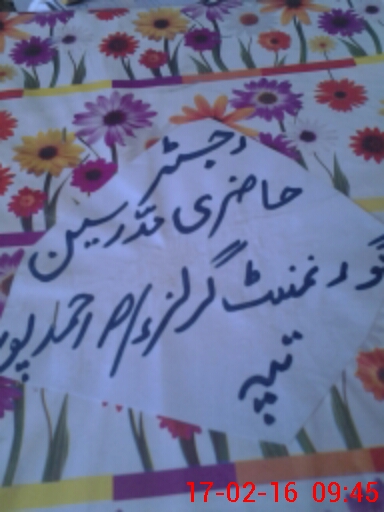 رجسٹر
حاضری مدرسین
گورنمنٹ گرلز ء/ احمد پور
تپہ
17-02-16 09:45